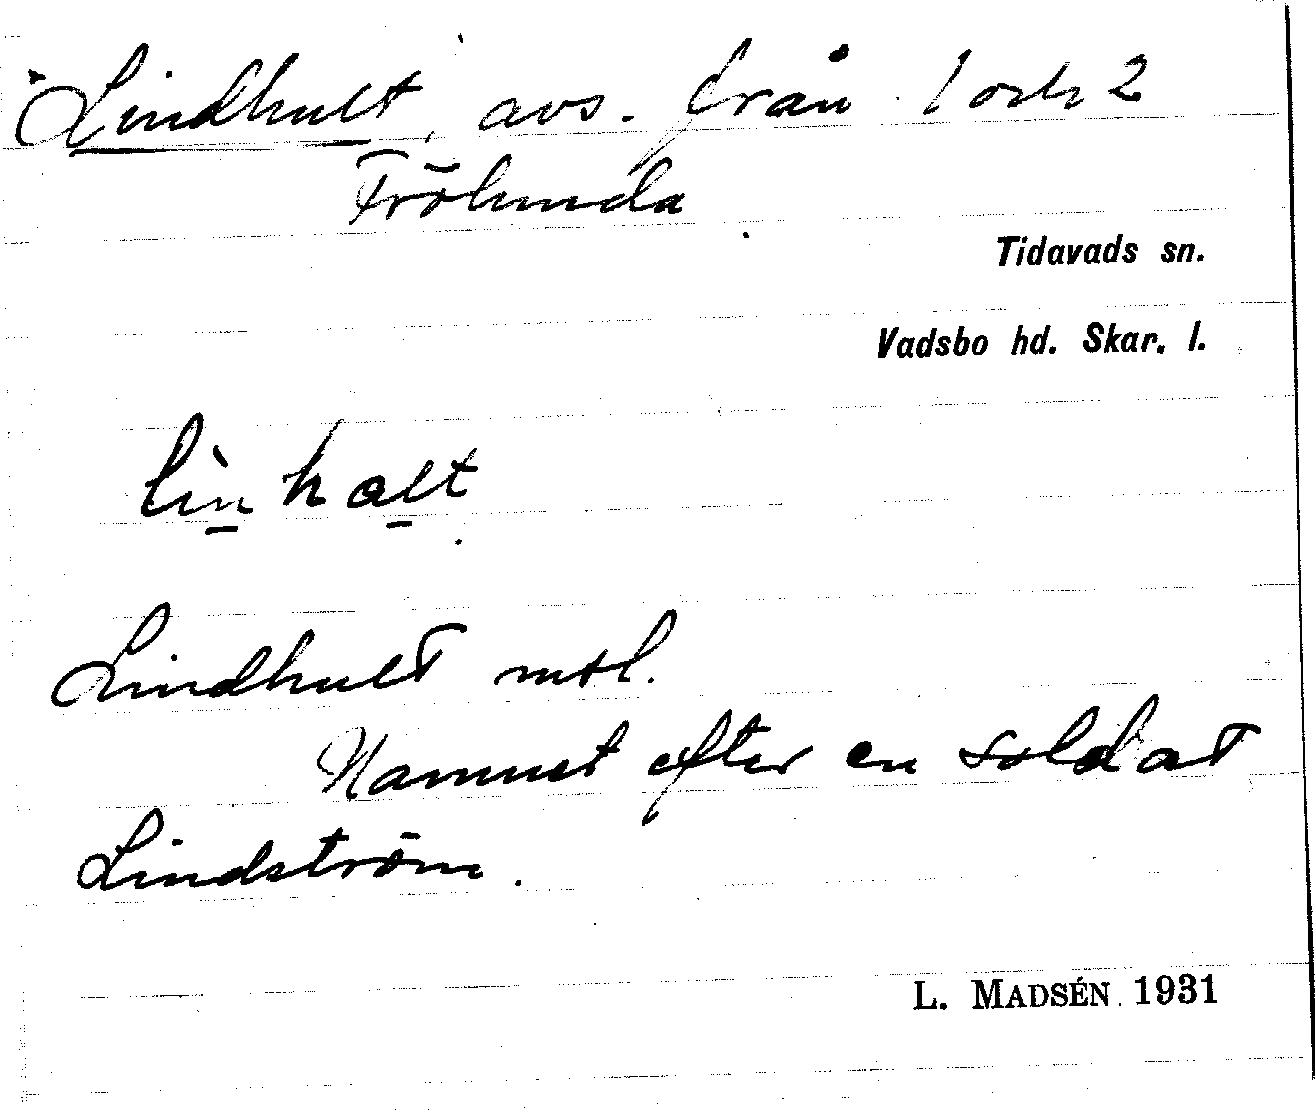 Lindhult, avs. från 1 och 2
Frölunda
Tidavads sn.
Vadsbo hd. Skar. l.
lìnhalt
Lindhult mtl.
Namnet efter en soldat
Lindström.
L. MADSÉN 1931